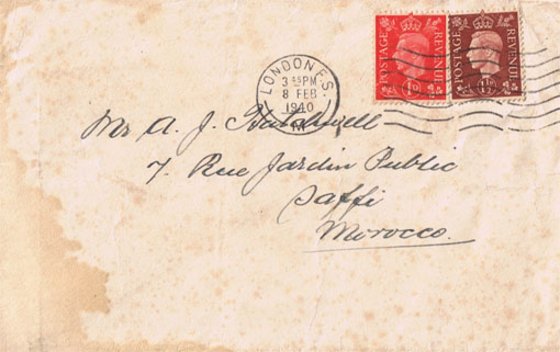 POSTAGE REVENUE 1D
POSTAGE REVENUE 1½D
LONDON F.S.
3 45 PM
8 FEB
1940
M
Mr A. J.
7. Rue Jardin Public
Saffi
Morocco.